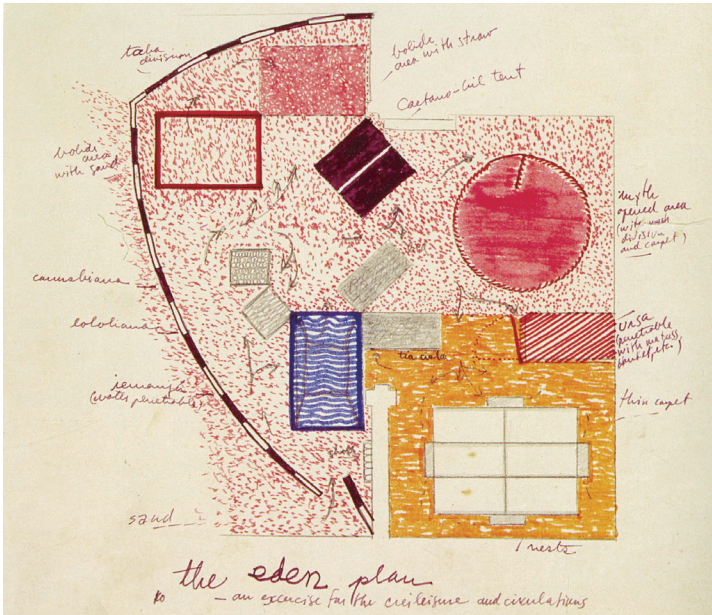 taba
division
bolide
area with straw
Caetano-Gil tent
bolide
area with sand
myth
opened area
(with
division
and carpet)
cannabiana
lololiana
URSA
(penetrable
with
iemanjá
(water penetrable)
tia ciata
thin carpet
sand
nests
the eden plan
— an exercise for the creileisure and circulations